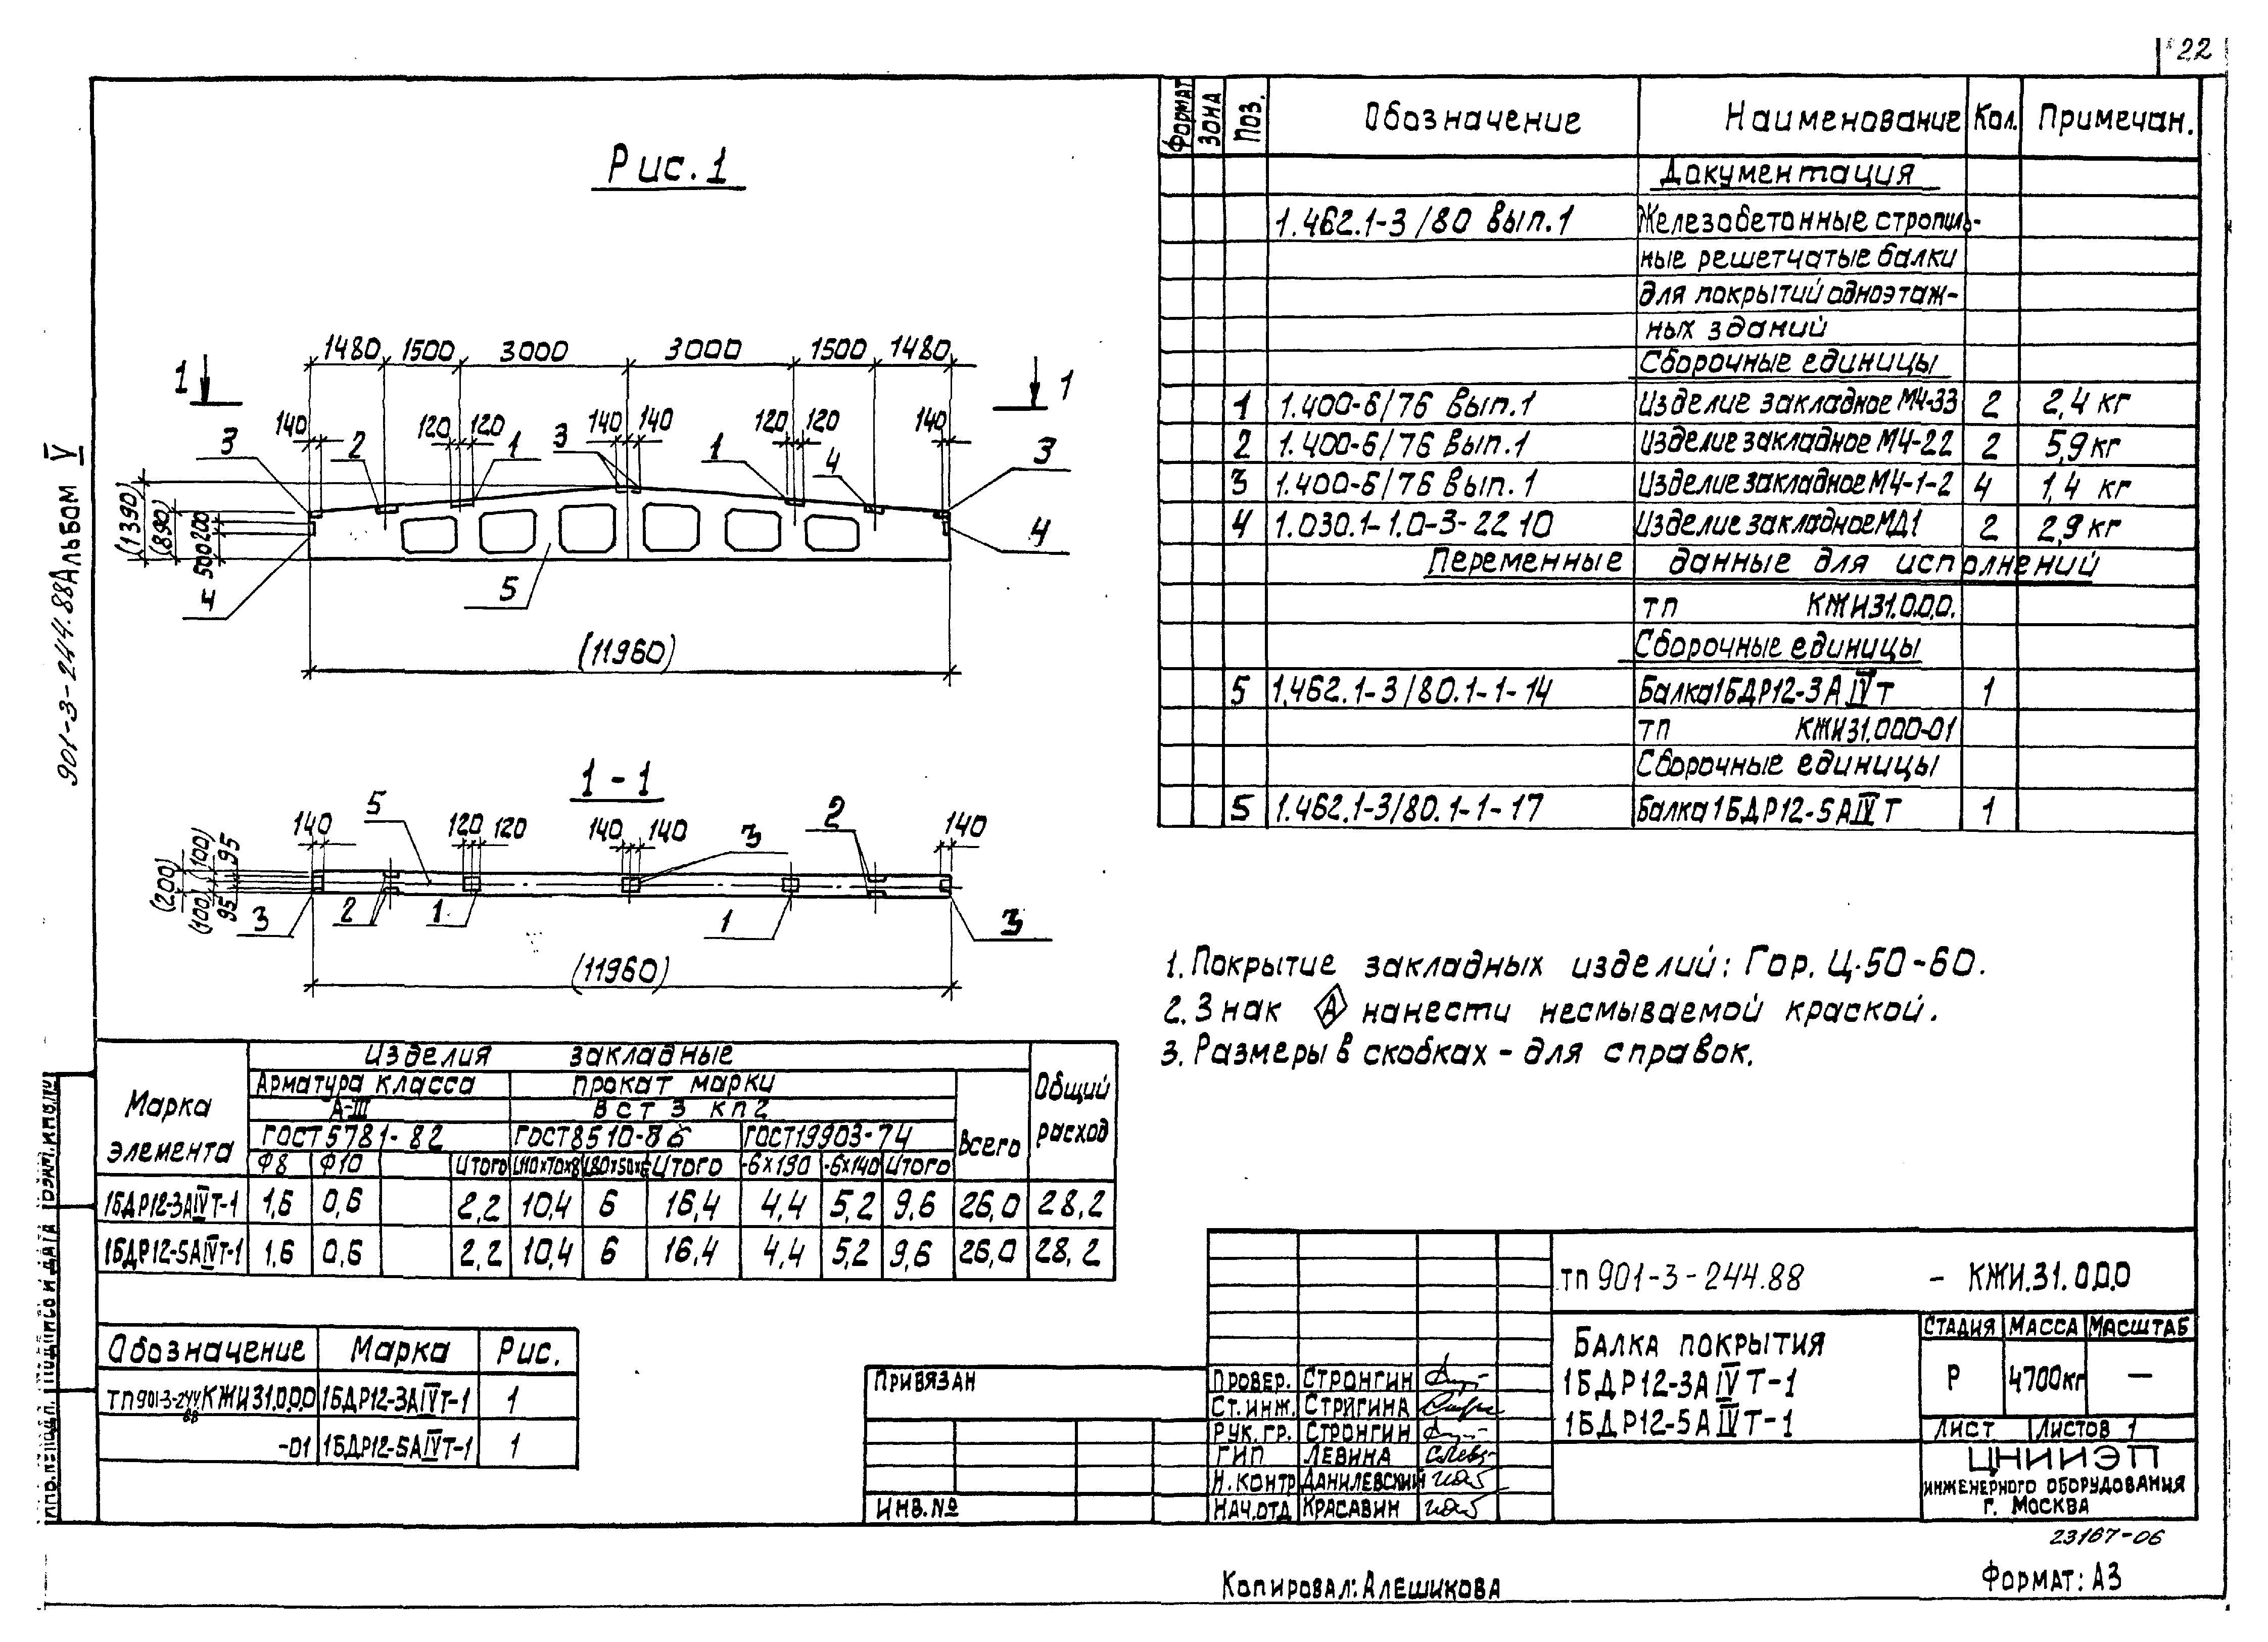 22
901-3-244.88 Альбом V
Рис. 1
1480 1500 3000 3000 1500 1480
1 1
140 120 120 140 140 120 120 140
3 2 1 3 1 4 3
(1390) (890) 200 500
4 5 4
(11960)
1-1
140 5 120 120 140 140 3 2 140
(200) (100) (100) 95 95
3 2 1 1 3
(11960)
Формат Зона Поз. Обозначение Наименование Кол. Примечан.
Документация
1.462.1-3/80 вып.1 Железобетонные стропиль-
ные решетчатые балки
для покрытий одноэтаж-
ных зданий
Сборочные единицы
1 1.400-6/76 вып.1 Изделие закладное М4-33 2 2,4 кг
2 1.400-6/76 вып.1 Изделие закладное М4-22 2 5,9 кг
3 1.400-6/76 вып.1 Изделие закладное М4-1-2 4 1,4 кг
4 1.030.1-1.0-3-22 10 Изделие закладное МД1 2 2,9 кг
Переменные данные для исполнений
тп КЖИ31.0.0.0.
Сборочные единицы
5 1.462.1-3/80.1-1-14 Балка 1БДР12-3АIVТ 1
тп КЖИ31.000-01
Сборочные единицы
5 1.462.1-3/80.1-1-17 Балка 1БДР12-5АIVТ 1
1. Покрытие закладных изделий: Гор. Ц.50-60.
2. Знак А нанести несмываемой краской.
3. Размеры в скобках - для справок.
Марка элемента Изделия закладные Общий расход
Арматура класса Прокат марки Всего
А-III ВСт 3 кп2
ГОСТ 5781-82 ГОСТ 8510-86 ГОСТ 19903-74
Ф8 Ф10 Итого L110х70х8 L80х50х6 Итого -6х190 -6х140 Итого
1БДР12-3АIVТ-1 1,6 0,6 2,2 10,4 6 16,4 4,4 5,2 9,6 26,0 28,2
1БДР12-5АIVТ-1 1,6 0,6 2,2 10,4 6 16,4 4,4 5,2 9,6 26,0 28,2
Обозначение Марка Рис.
ТП901-3-244.88 КЖИ31.0.0.0 1БДР12-3АIVТ-1 1
-01 1БДР12-5АIVТ-1 1
Привязан
Инв.№
Провер. Стронгин
Ст.инж. Стригина
Рук.гр. Стронгин
ГИП Левина
Н.контр Данилевский
Нач.отд Красавин
тп 901-3-244.88 - КЖИ.31.0.0.0
Балка покрытия
1БДР12-3АIVТ-1
1БДР12-5АIVТ-1
Стадия Масса Масштаб
Р 4700кг —
Лист Листов 1
ЦНИИЭП
инженерного оборудования
г. Москва
23167-06
Копировал: Алешикова
Формат: А3